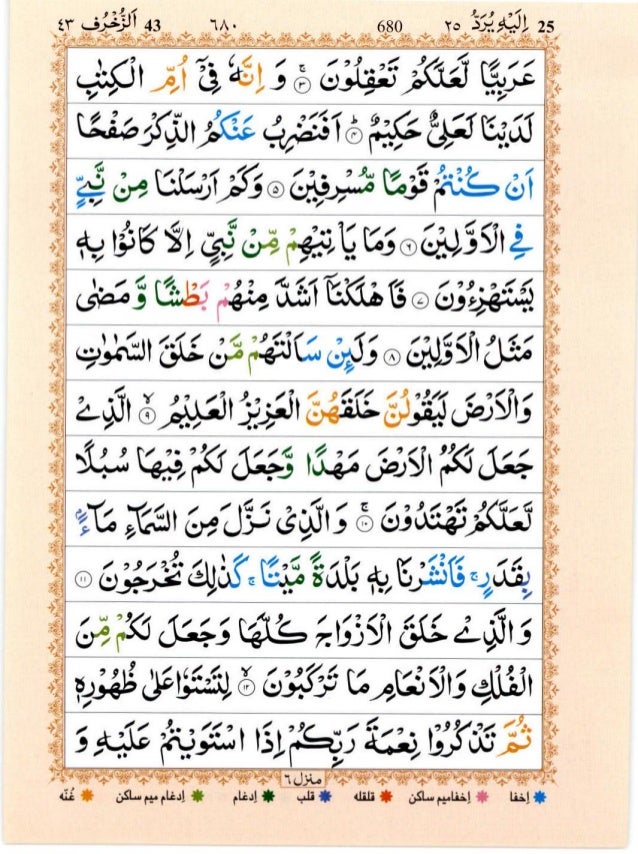 ٤٣ اَلزُّخۡرُف 43 ٦٨٠ 680 اِلَيۡهِ يُرَدُّ ٢٥ 25
عَرَبِيًّا لَّعَلَّكُمۡ تَعۡقِلُوۡنَ ۚ‏ ٣ وَ اِنَّهٗ فِىۡۤ اُمِّ الۡكِتٰبِ
لَدَيۡنَا لَعَلِىٌّ حَكِيۡمٌؕ‏ ٤ اَفَنَضۡرِبُ عَنۡكُمُ الذِّكۡرَ صَفۡحًا
اَنۡ كُنۡتُمۡ قَوۡمًا مُّسۡرِفِيۡنَ‏ ٥ وَكَمۡ اَرۡسَلۡنَا مِنۡ نَّبِىٍّ
فِى الۡاَوَّلِيۡنَ‏ ٦ وَمَا يَاۡتِيۡهِمۡ مِّنۡ نَّبِىٍّ اِلَّا كَانُوۡا بِهٖ
يَسۡتَهۡزِءُوۡنَ‏ ٧ فَاَهۡلَكۡنَاۤ اَشَدَّ مِنۡهُمۡ بَطۡشًا وَّ مَضٰى
مَثَلُ الۡاَوَّلِيۡنَ‏ ٨ وَلَئِنۡ سَاَلۡتَهُمۡ مَّنۡ خَلَقَ السَّمٰوٰتِ
وَالۡاَرۡضَ لَيَقُوۡلُنَّ خَلَقَهُنَّ الۡعَزِيۡزُ الۡعَلِيۡمُۙ‏ ٩ الَّذِىۡ
جَعَلَ لَكُمُ الۡاَرۡضَ مَهۡدًا وَّجَعَلَ لَكُمۡ فِيۡهَا سُبُلًا
لَّعَلَّكُمۡ تَهۡتَدُوۡنَ‌ۚ‏ ١٠ وَالَّذِىۡ نَزَّلَ مِنَ السَّمَآءِ مَآءًۢ
بِقَدَرٍۚ فَاَنۡشَرۡنَا بِهٖ بَلۡدَةً مَّيۡتًاۚ كَذٰلِكَ تُخۡرَجُوۡنَ‏ ١١
وَالَّذِىۡ خَلَقَ الۡاَزۡوَاجَ كُلَّهَا وَجَعَلَ لَكُمۡ مِّنَ
الۡفُلۡكِ وَالۡاَنۡعَامِ مَا تَرۡكَبُوۡنَۙ‏ ١٢ لِتَسۡتَوٗا عَلٰى ظُهُوۡرِهٖ
ثُمَّ تَذۡكُرُوۡا نِعۡمَةَ رَبِّكُمۡ اِذَا اسۡتَوَيۡتُمۡ عَلَيۡهِ وَ
منزل ٦
اِخفا اِخفامیم ساکن قلقله قلب اِدغام اِدغام میم ساکن غُنّه